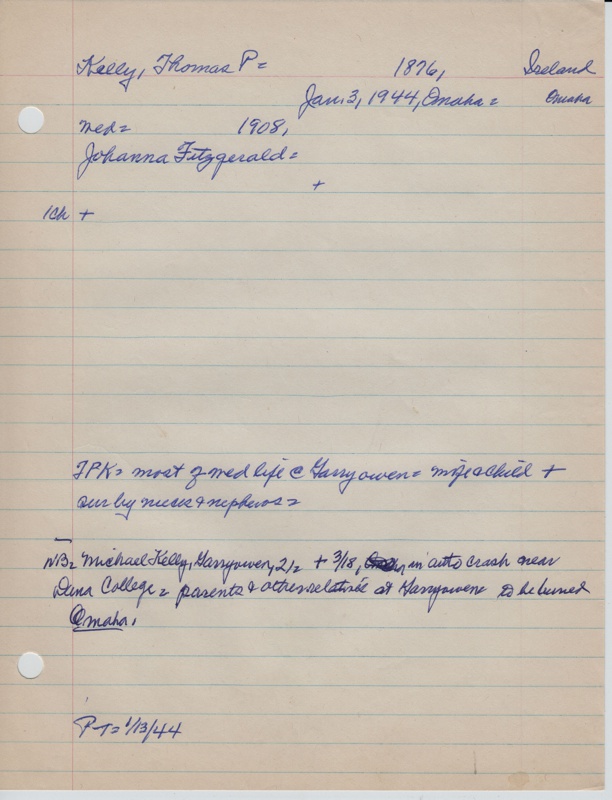 Kelly, Thomas P = 1876, Ireland
Jan. 3, 1944, Omaha = Omaha
med = 1908,
Johanna Fitzgerald =
+
1 ch +
TPK = most of med life @ Garryowen = wife & child +
sur by nieces & nephews =
NB = Michael Kelly, Garryowen, 21 = + 3/18, in auto crash near
Dana College = parents & other relatives at Garryowen to be buried
Omaha.
PT = 1/13/44